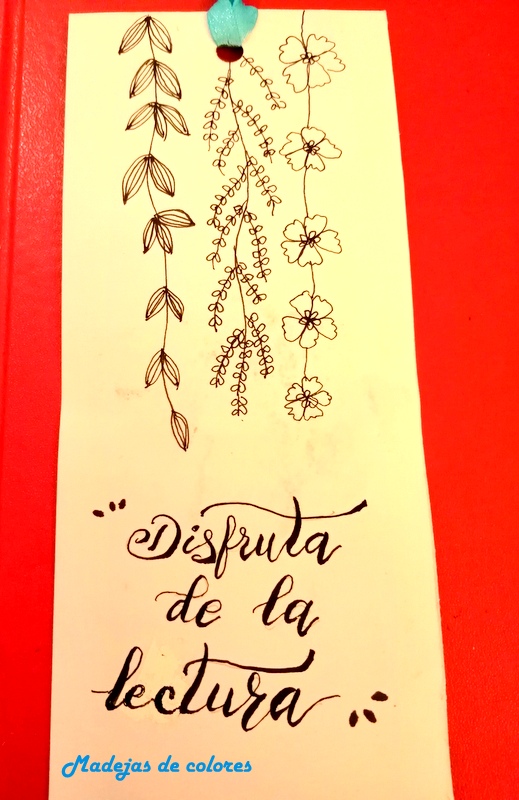 "Disfruta
de la
lectura"
Madejas de colores